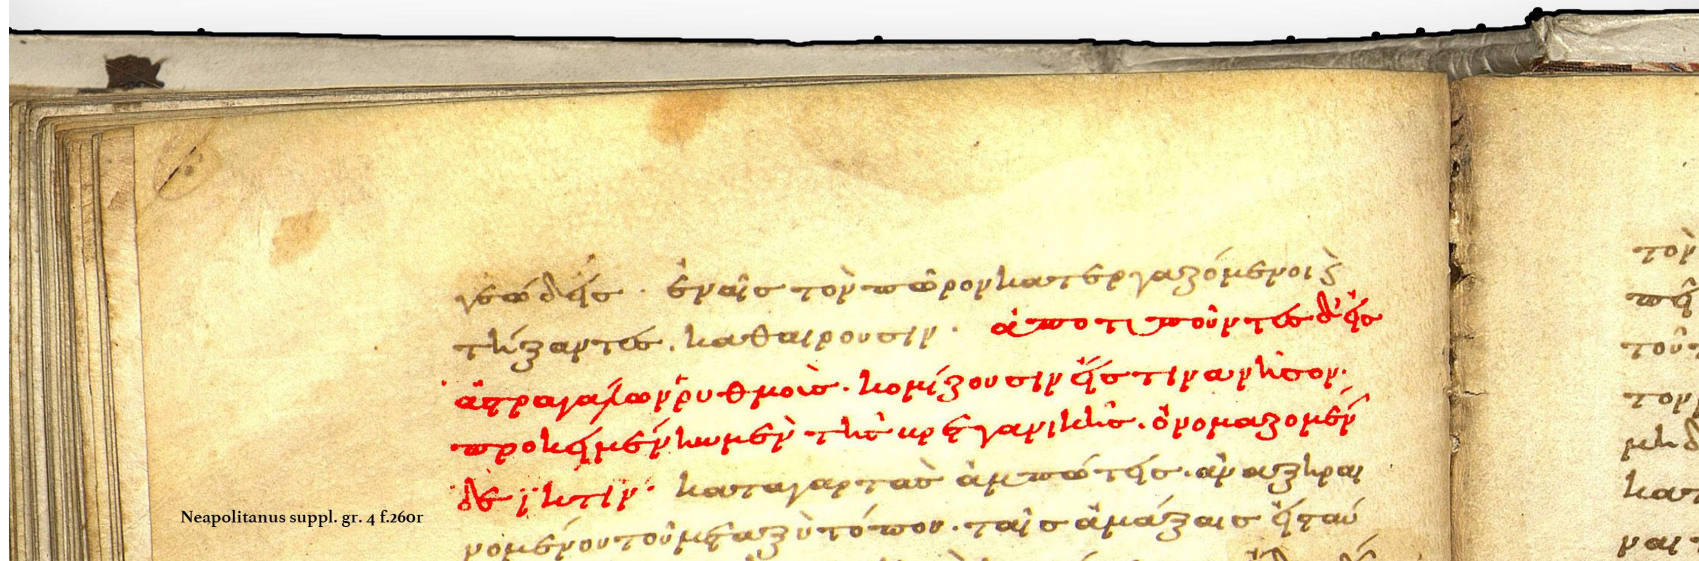 γεώδεις · ἐν αἷς τὸν πῶρον κατεργαζόμενοι καὶ
τήξαντες · καθαίρουσιν · ἀποτυποῦντες δ' εἰς
ἀστραγάλων ῥυθμοὺς · κομίζουσιν εἴς τινα νῆσον ·
προκειμένην μὲν τῆς βρεττανικῆς · ὀνομαζομένην
δὲ ἴκτιν · κατὰ γὰρ τὰς ἀμπώτεις · ἀναξηραι
νομένου τοῦ μεταξὺ τόπου · ταῖς ἁμάξαις εἰς ταύ
Neapolitanus suppl. gr. 4 f.260r
τὸν
τοῦτ
τον
μηδ
κατ
ναι τ